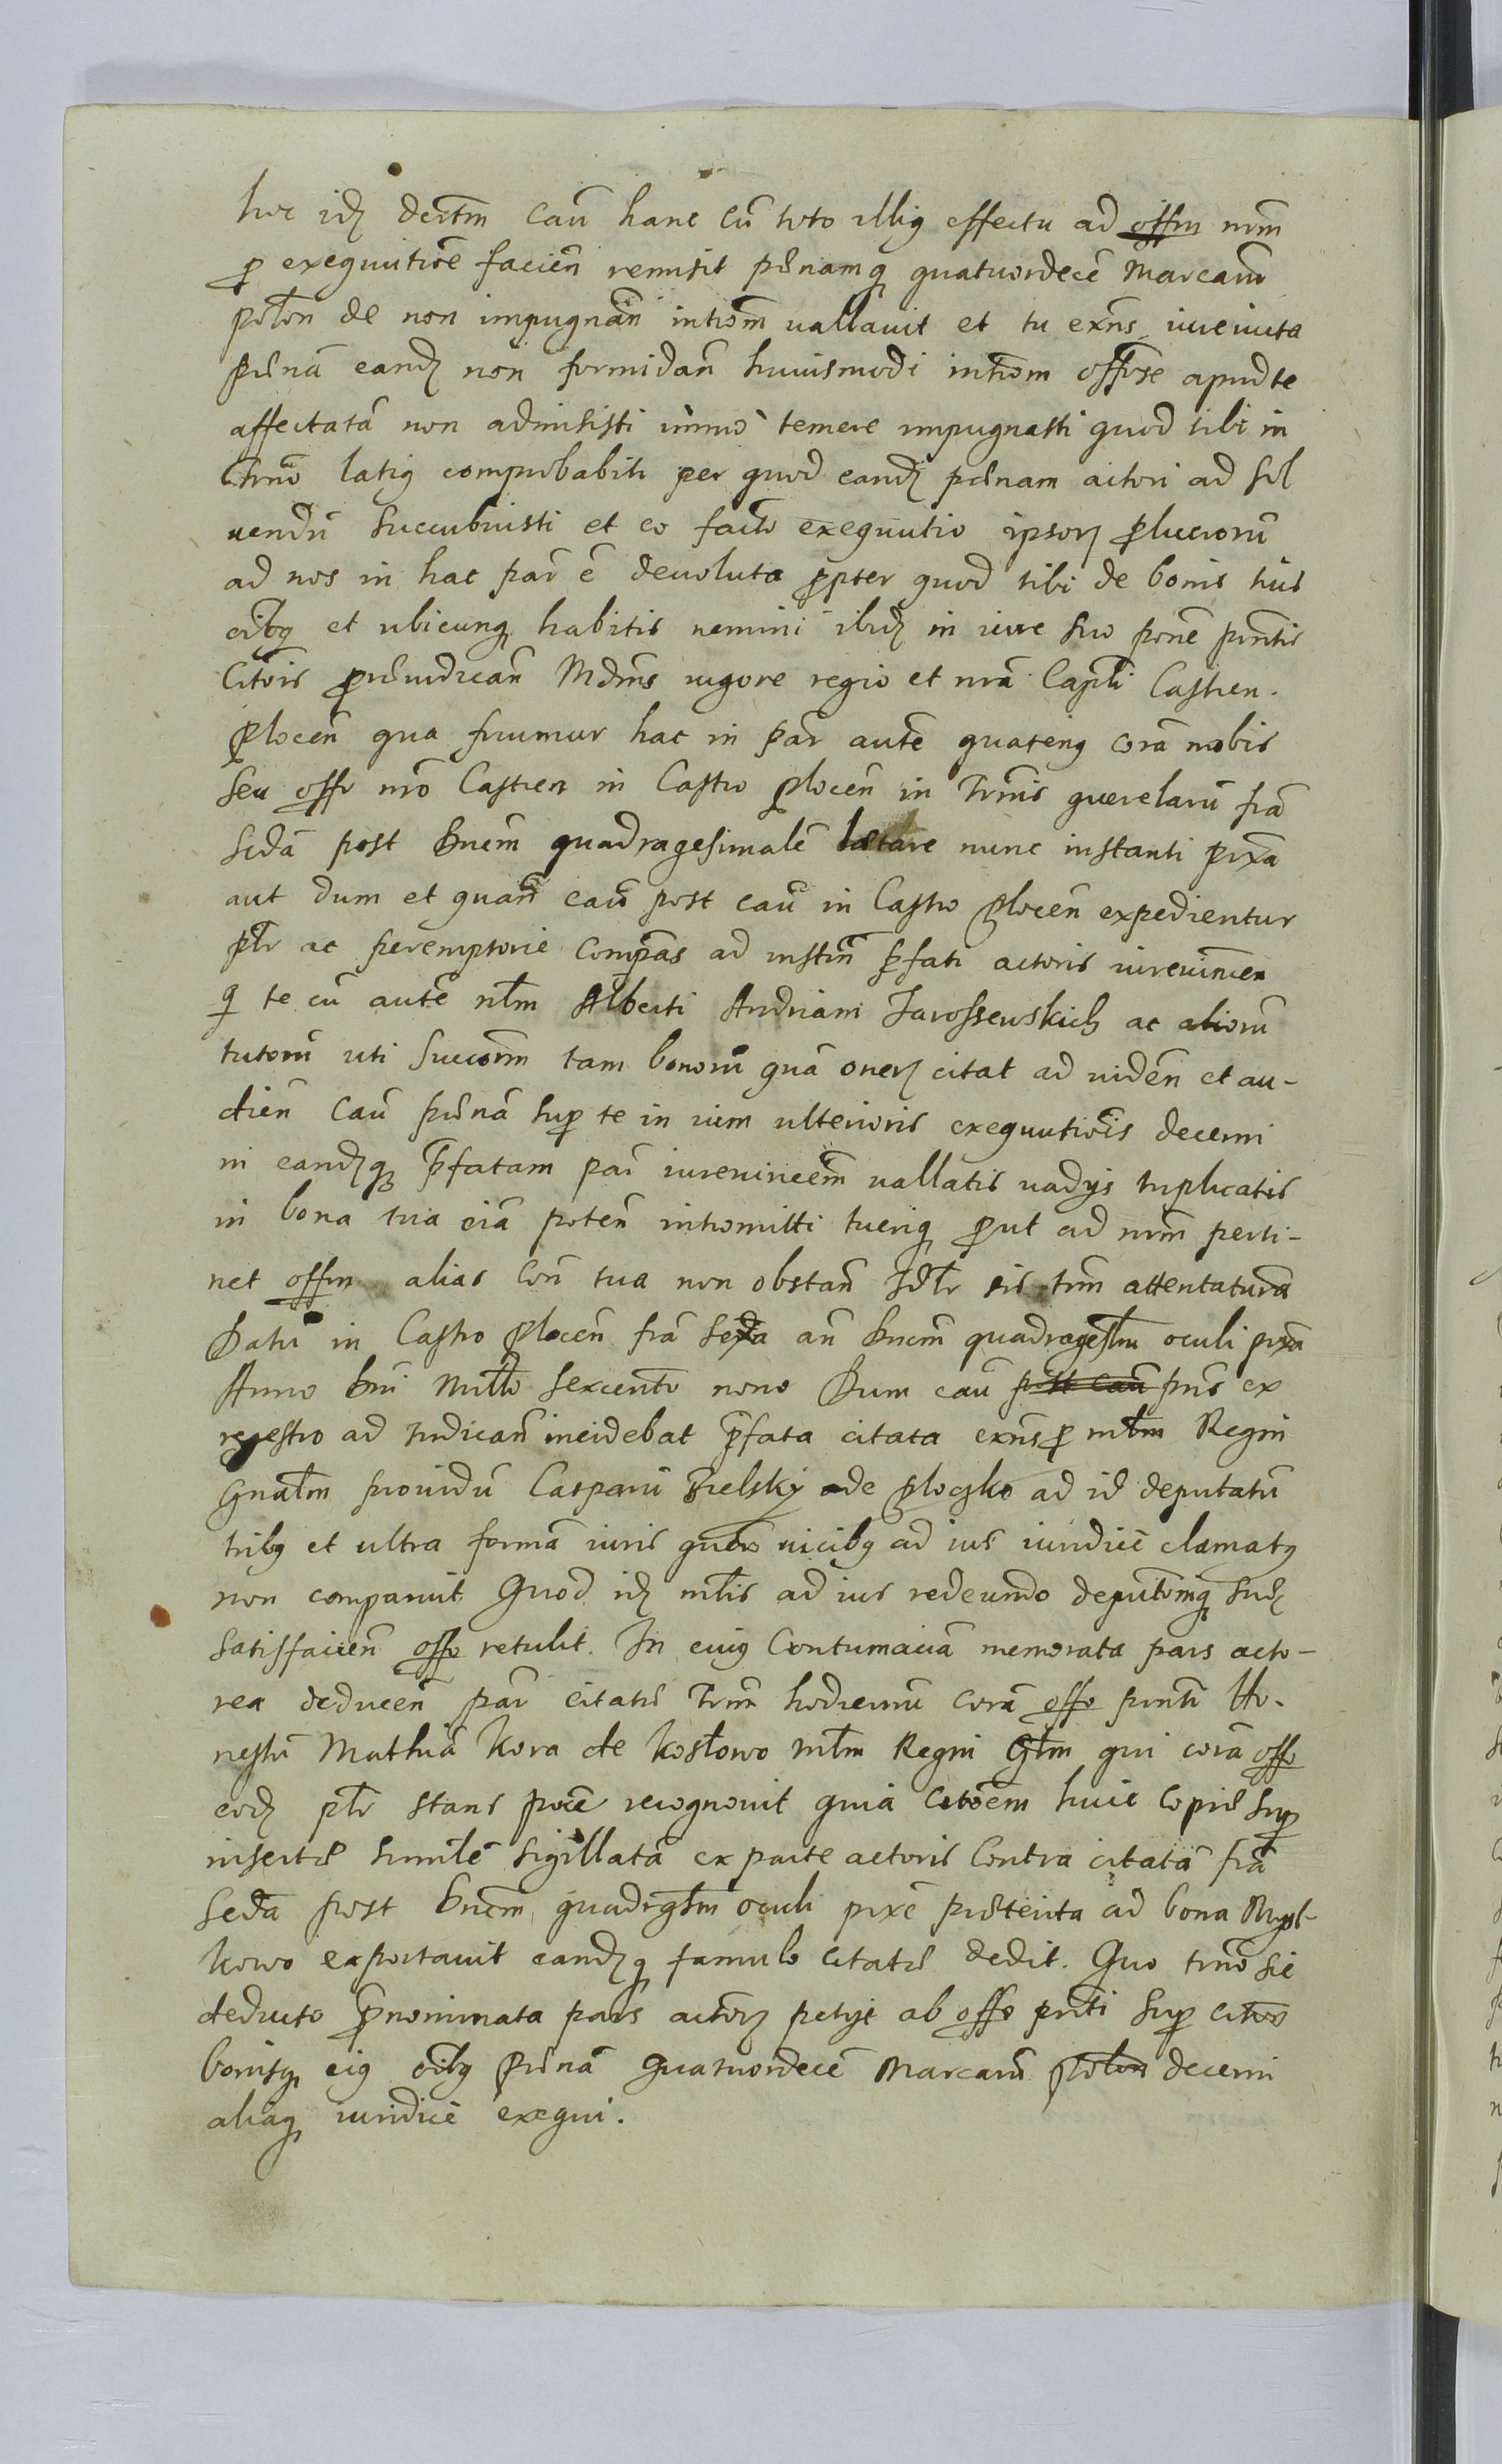 hoc idẽ decrtm cau͠ hanc cũ toto illi9 effectu ad offm nrm̃
ꝓ exequutiõe facień remisit pœnamq3 quatuordecẽ Marcarũ
polón de non impugnań introm̃ uallauit et tu exñs iureuicta
pœnã eandẽ non formidań huiusmodi introm̃ offose apud te
affectatã non admisisti immò temere impugnasti quod tibi in
trno͂ lati9 comprobabitr per quod eandẽ pœnam actori ad sol
uendũ succubuisti et eo facto exequutio ipsorẽ plucrorũ
ad nos in hac par͂ ẽ deuoluta ꝓpter quod tibi de bonis tuis
oib9 et ubicunq3 habitis nemini ibidẽ in iure suo põne pñtis
Citõis p̃iudicań Mdms uigore regio et nrã Capli Castren.
Plocen͂ qua fruimur hac in par͂ auté quaten9 corã nobis
seu offo nro͂ Castren in Castro Plocen͂ in Trmis querelarũ frã
scdã post Dnem͂ quadragesimalẽ lætare nunc instanti pxã
aut dum et quań cau͠ post cau͠ in Castro Plocen͂ expedientur
pltr ac peremptorie compãs ad instm͂ p̃fati actoris iureuincen
q te cũ auté nlm͂ Alberti Andriani Jarossewskich ac aliorũ
tutorũ uti succorum͂ tam bonorũ quã onerẽ citat ad uiden͂ et au-
dien͂ cau͠ pœnã sup te in uim ulterioris exequutiõis decerni
in eandẽq3 p̃fatam par͂ iureuincem͂ uallatis uadijs triplicatis
in bona tua eiã poten͂ intromitti tueriq3 ꝓut ad nrm͂ perti-
net offm alias con͂ tua non obstań Jdlr sis trm͂ attentatura͂
Datũ in Castro Plocen͂ frã sexta an͂ Dnem͂ quadragesm͂ oculi pxã
Anno Dni͂ Millo sexcento nono Dum cau͠ post cau͠ pñs ex
regestro ad iudicań incidebat p̃fata citata exñs ꝓ mlm͂ Regni
Gnalm͂ prouidũ Casparũ Bielsky de Ploczko ad id deputatũ
trib9 et ultra formã iuris quatuor uicib9 ad ius iuridicè clamat9
non comparuit Quod idẽ mlis͂ ad ius redeundo deputõniq3 suẽ
satisfacien͂ offo retulit. In cui9 Contumaciã memorata pars acto-
rea deducen͂ par͂ citatæ Trm͂ hodiernũ corã offo pñti Ho-
nestũ Mathiã Kora de Kosłowo mlm͂ Regni Glm͂ qui corã offo
eodẽ pltr stans põte recognouit quia Citõem huic copiæ sup
insertæ similẽ sigillatã ex parte actoris contra citatã frã
Scdã post Dnem͂ quadrgtm͂ oculi pxe͂ præterita ad bona Mysl-
kowo exportauit eandẽq3 famulo citatæ dedit. Quo trno͂ sic
deducto p̃nominata pars actorẽ petijt ab offo pñti sup citõ
bonisq3 ei9 oib9 pœnã quatuordecẽ Marcarũ polon decerni
aliaq3 iuridicè exequi.